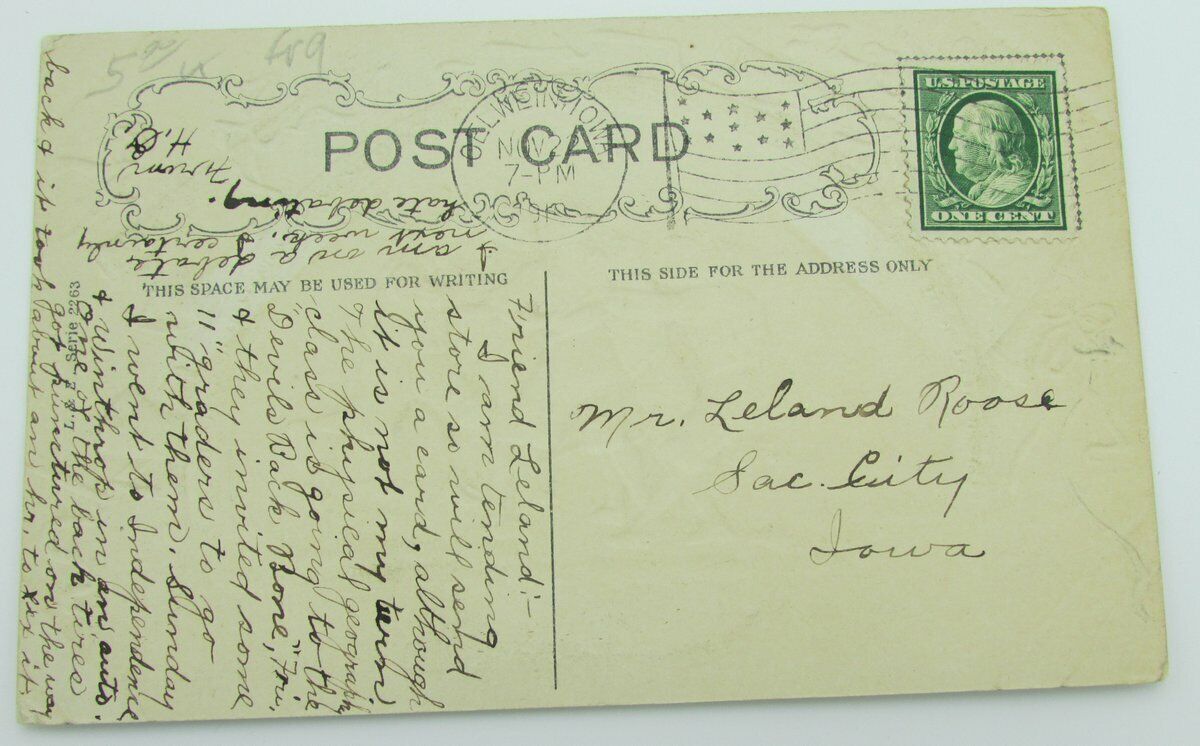 5 00/xx
fr9
POST CARD
OELWEIN, IOWA
NOV 2
7-PM
U.S. POSTAGE
ONE CENT
THIS SPACE MAY BE USED FOR WRITING
THIS SIDE FOR THE ADDRESS ONLY
Mr. Leland Roose
Sac. City
Iowa
Serie 2263
Friend Leland:-
I am tending
store so will send
you a card, although
it is not my turn.
The physical geography
class is going to the
"Devils Back Bone," Fri.
& they invited some
11" graders to go
with them. Sunday
I went to Independence
& Winthrop in an auto.
One of the back tires
got punctured on the way
back & it took about an hr. to fix it.
I am on a debate
next week. I certainly
hate debating.
From
H.C.